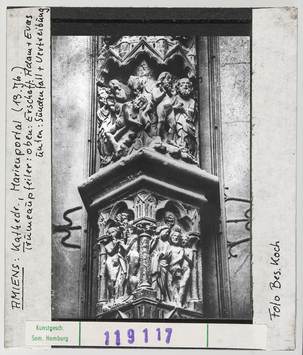 AMIENS: Kathedr., Marienportal (13. Jh.)
Trumeaupfeiler: oben: Erschaff. Adam + Evas
unten: Sündenfall + Vertreibung
Foto Bes. Koch
Kunstgesch.
Sem. Hamburg
119117